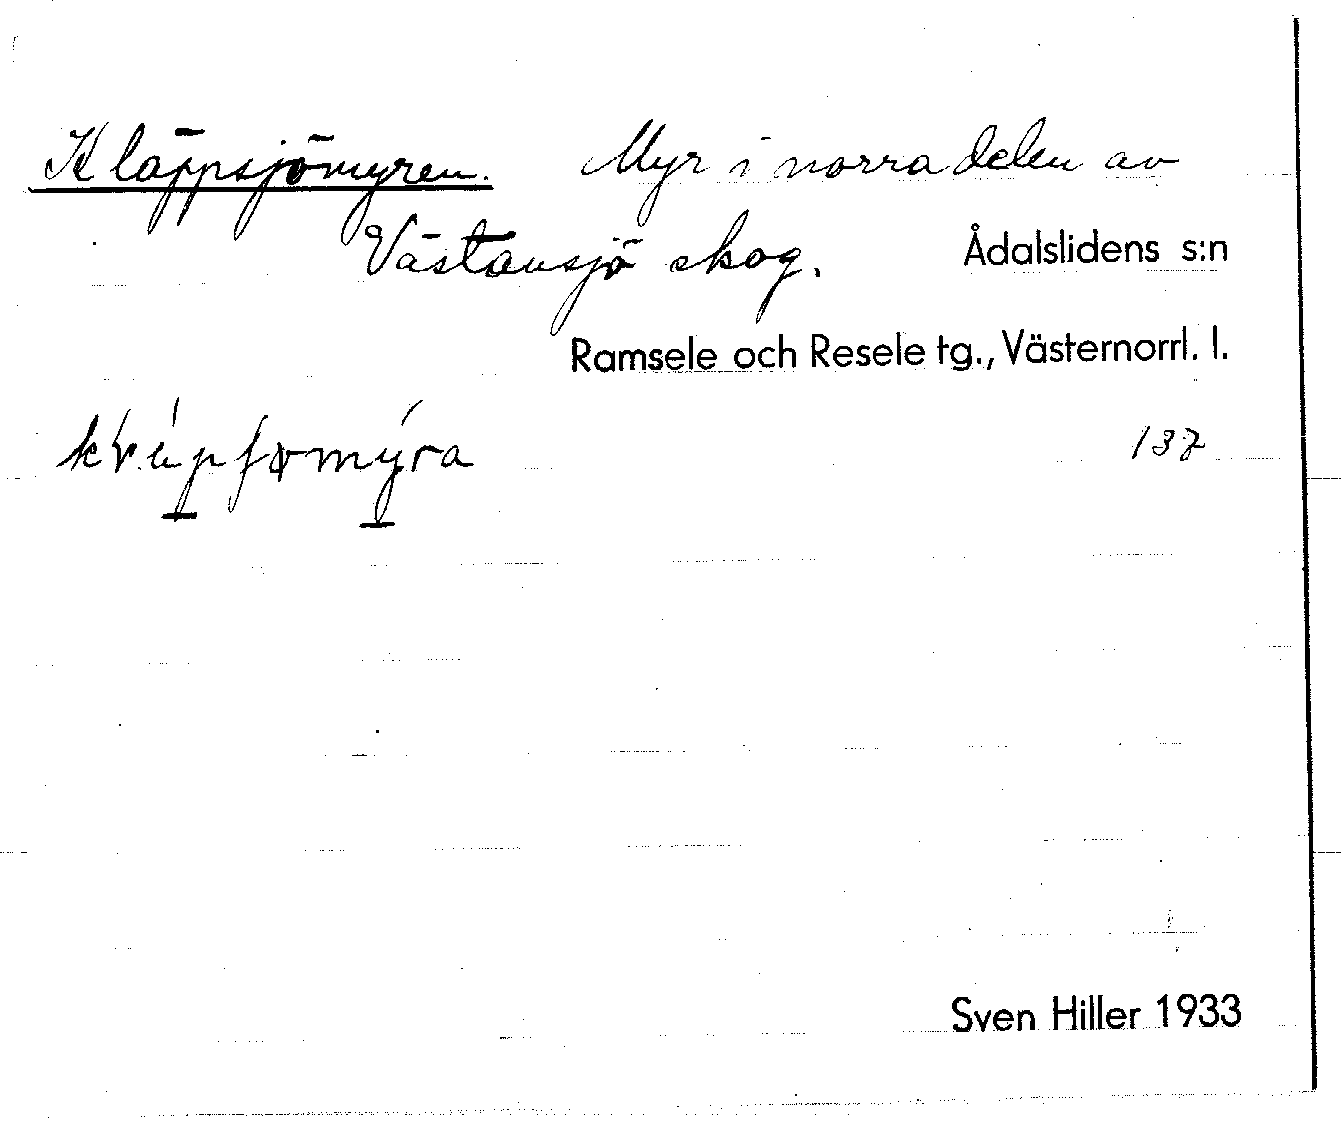 Kläppsjömyren. Myr i norra delen av
Västansjö skog. Ådalslidens s:n
Ramsele och Resele tg., Västernorrl. l.
137
Sven Hiller 1933